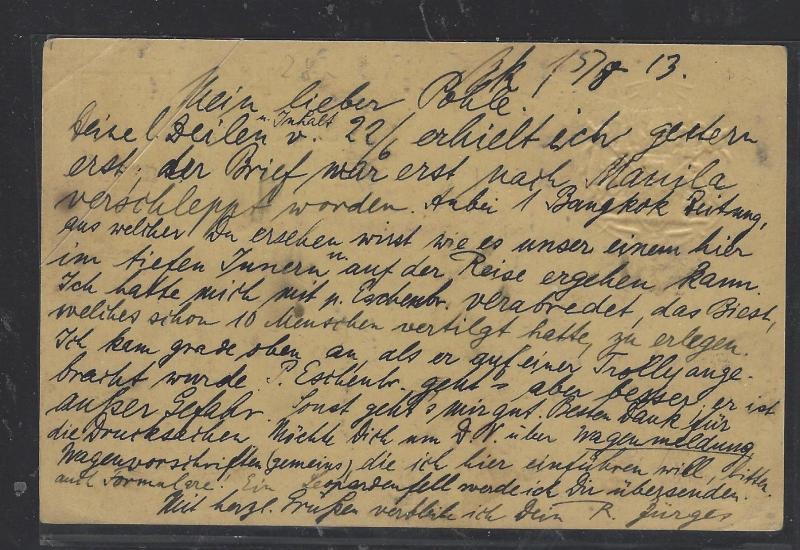 Bk 15/8 13.
Mein lieber Pohle.
Deine Zeilen u. Inhalt v. 22/6 erhielt ich gestern
erst, der Brief war erst nach Manila
verschleppt worden. Anbei 1 Bangkok Zeitung,
aus welcher Du ersehen wirst wie es unser einem hier
im tiefen Innern u. auf der Reise ergehen kann.
Ich hatte mich mit p. Eschenbr. verabredet, das Biest,
welches schon 10 Menschen vertilgt hatte, zu erlegen.
Ich kam grade oben an, als er auf einer Trolly ange-
bracht wurde. P. Eschenbr. geht's aber besser, er ist
außer Gefahr. Sonst geht's mir gut. Besten Dank für
die Drucksachen. Möchte Dich um D.V. über Wagenmeldung
Wagenvorschriften (gemeins), die ich hier einführen will, bitten.
auch Formulare! Ein Leopardenfell werde ich Dir übersenden.
Mit herzl. Grüßen verbleibe ich Dein R. Jürges